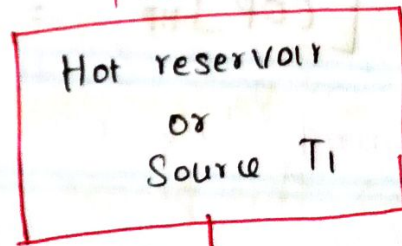 Hot reservoir
or
Source T1